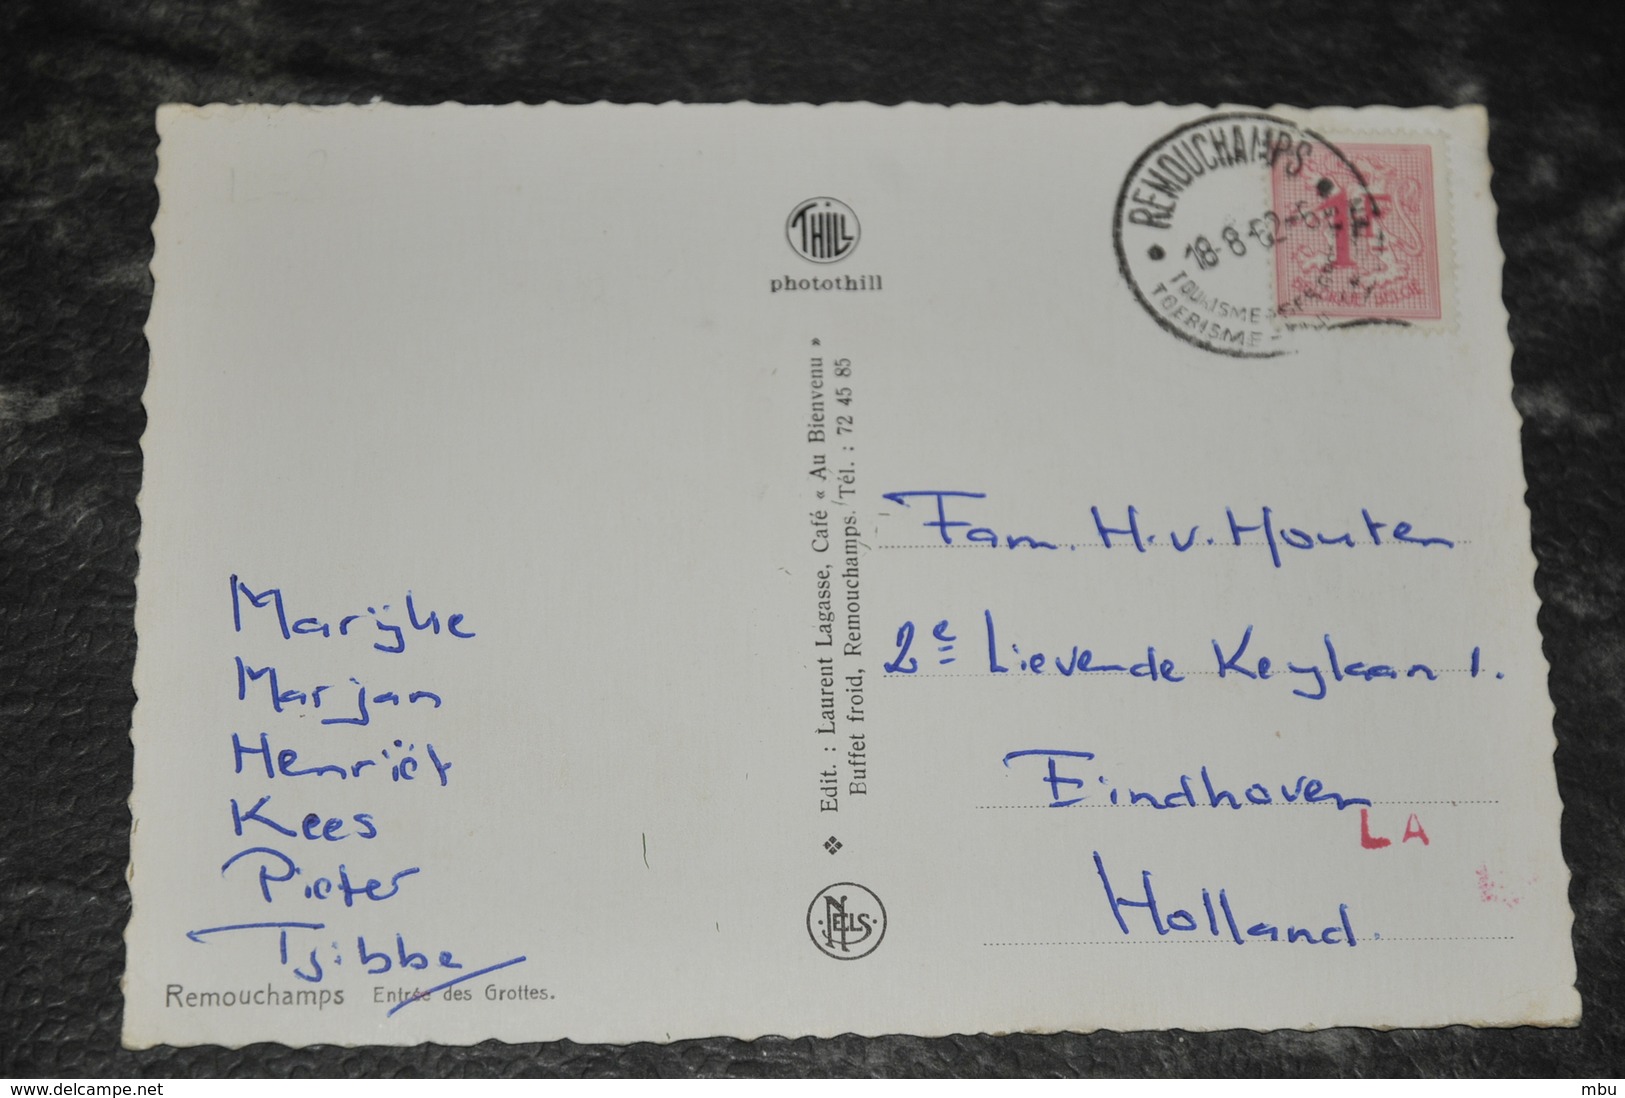 THILL
photothill
REMOUCHAMPS
18-8-62-6
TOURISME
TOERISME
1F
Edit. : Laurent Lagasse, Café « Au Bienvenu »
Buffet froid, Remouchamps. Tél. : 72 45 85
NELS
Fam. H. v. Houten
2e Lievende Keylaan 1.
Eindhoven
LA
Holland.
Marijke
Marjan
Henriët
Kees
Pieter
Tjibbe
Remouchamps Entrée des Grottes.
www.delcampe.net
mbu